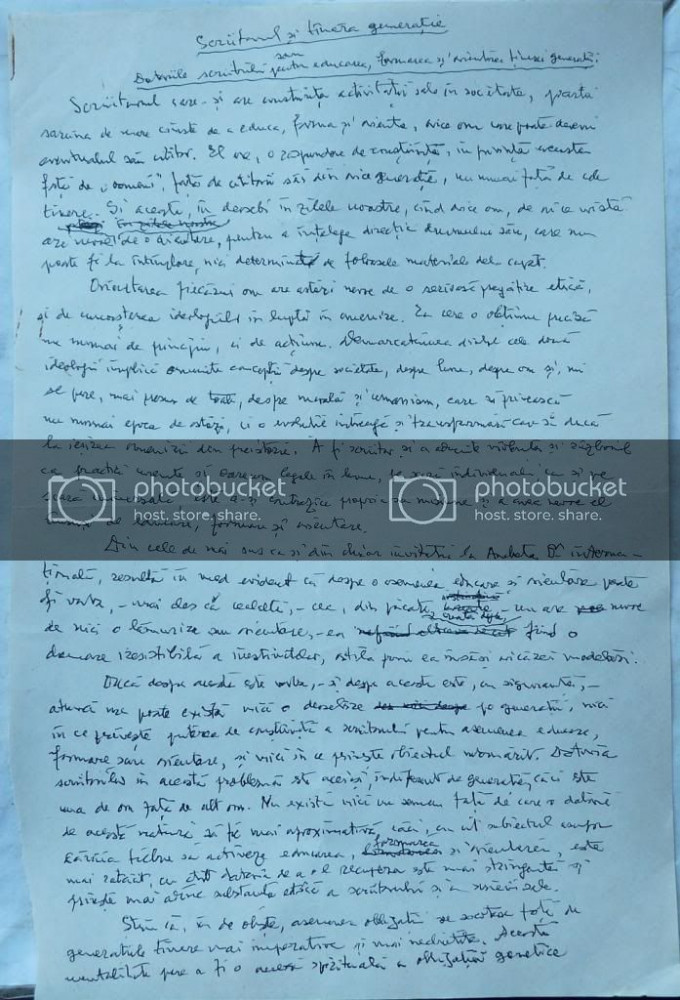 Scriitorul și tînăra generație
sau
Datoriile scriitorului pentru educarea, formarea și orientarea tinerei generații.
Scriitorul care-și are conștiința activității sale în societate, poartă
sarcina de mare cinste de a educa, forma și orienta, orice om care poate deveni
eventualul său cititor. El are, o răspundere de conștiință, în privința aceasta
față de "oameni", față de cititorii săi din orice generație, nu numai față de cele
tinere. Și aceasta, în deosebi în zilele noastre, cînd orice om, de orice vîrstă
are nevoie de o orientare, pentru a înțelege direcția drumului său, care nu
poate fi la întîmplare, nici determinată de foloasele materiale de căpătat.
Orientarea fiecărui om are astăzi nevoie de o serioasă pregătire etică,
și de cunoașterea ideologiilor în luptă în omenire. Ea cere o obțiune precisă
nu numai de principiu, ci de acțiune. Demarcațiunea dintre cele două
ideologii implică anumite concepții despre societate, despre lume, despre om și, mi
se pare, mai presus de toate, despre morală și umanism, care să privească
nu numai epoca de astăzi, ci o evoluție întreagă și transformări care să ducă
la ieșirea omenirii din preistorie. A fi scriitor și a admite războiul
ca practici curente și oarecum legale în lume, pe scară individuală ca și pe
scară universală este a-și contrazice propria sa misiune și a avea nevoie el
de educare, formare și orientare.
photobucket
host. store. share.
photobucket
host. store. share.
Din cele de mai sus ca și din chiar invitația la Ancheta internațională,
rezultă în mod evident că despre o asemenea educare și orientare poate
fi vorba, - mai ales că cealaltă, - cea, din păcate, - nu are nevoie
de nici o lămurire sau orientare, - ea fiind o
urmare irezistibilă a instinctelor, ostilă prin ea însăși oricărei modelări.
Dacă despre aceasta este vorba, - și despre aceasta este, cu siguranță, -
atunci nu poate exista nici o deosebire pe generații, nici
în ce privește puterea de conștiință a scriitorului pentru asemenea educare,
formare sau orientare, și nici în ce privește obiectul urmărit. Datoria
scriitorului în această problemă este aceiași, indiferent de generație, căci este
una de om față de alt om. Nu există nici un seman față de care o datorie
de această natură să fie mai aproximativă, căci, cu cît subiectul asupra
căruia trebue să activeze educarea, formarea și orientarea, este
mai rătăcit, cu atît datoria de a-l recupera este mai stringentă și
privește mai adînc substanța etică a scriitorului și a scrierii sale.
Știm că, în de obște, asemenea obligații se socotesc față de
generațiile tinere mai imperative și mai neclintite. Această
mentalitate pare a fi o anexă spirituală a obligației genetice